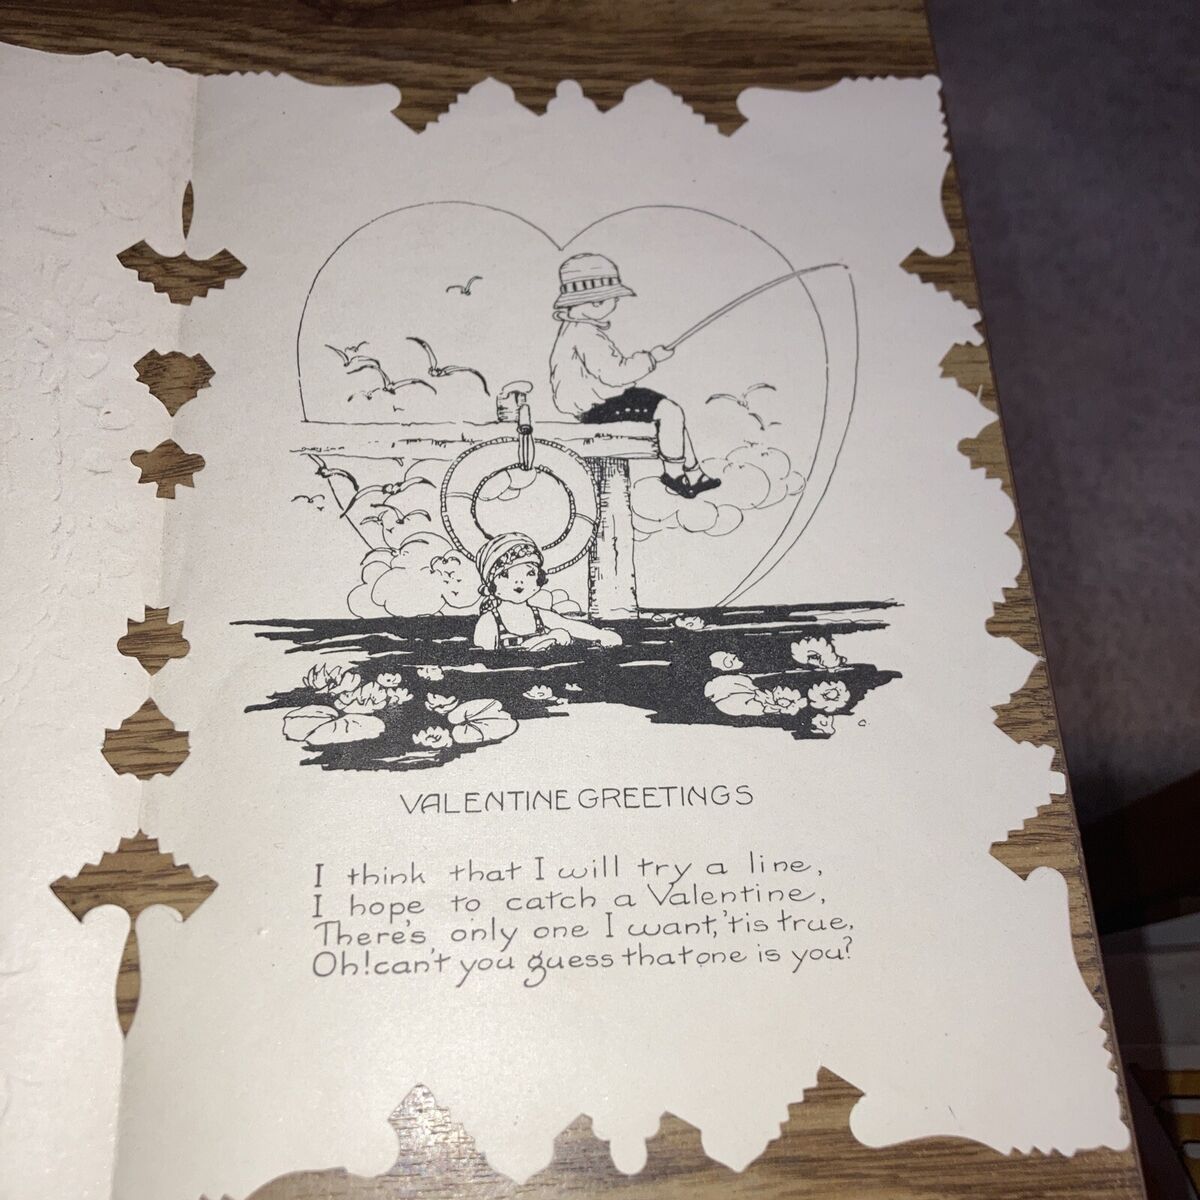 C.
VALENTINE GREETINGS
I think that I will try a line,
I hope to catch a Valentine,
There's only one I want, 'tis true,
Oh! can't you guess that one is you?